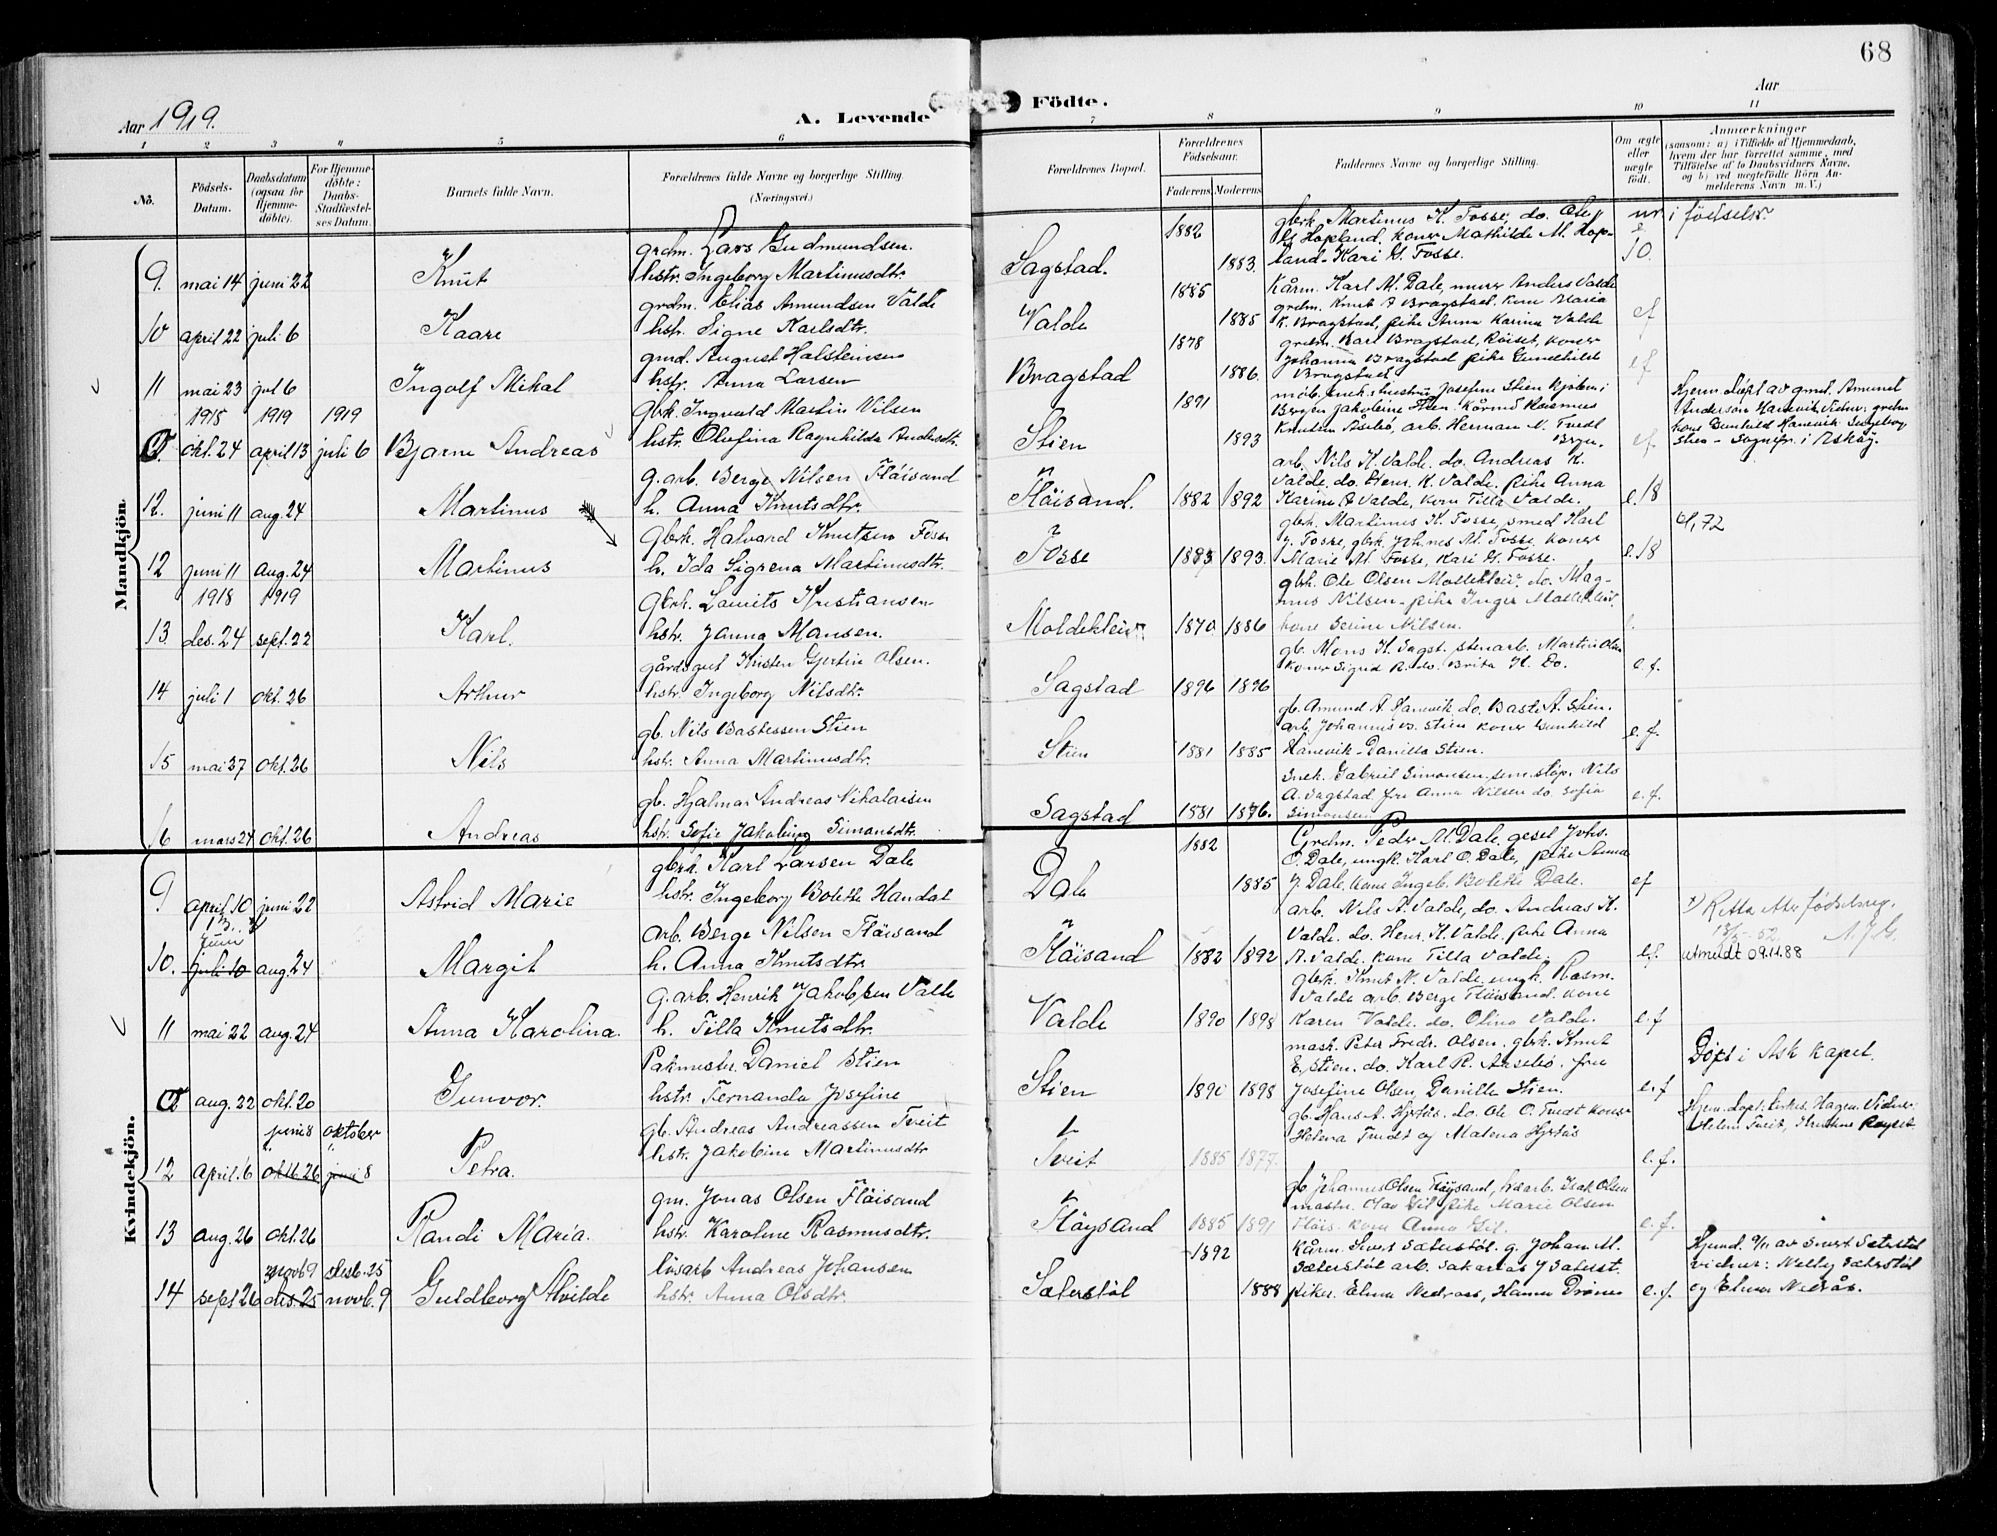 68
Aar 1919.
A. Levende
Födte.
Aar
1 2 3 4 5 6 7 8 9 10 11
No.
Födsels-Datum.
Daabsdatum (ogsaa for Hjemme-döbte).
For Hjemme-döbte: Daabs-Stadfæstel-ses Datum.
Barnets fulde Navn.
Forældrenes fulde Navne og borgerlige Stilling.
(Næringsvei.)
Forældrenes Bopæl.
Forældrenes Födselsaar.
Faderens. Moderens.
Faddernes Navne og borgerlige Stilling.
Om ægte eller uægte födt.
Anmærkninger
(saasom: a) i Tilfælde af Hjemmedaab,
hvem der har forrettet samme, med
Tilföielse af to Daabsvidners Navne,
og b) ved uegtefödte Börn An-
melderens Navn m. V.)
Mandkjön.
9. mai 14 juni 22 Knut
grdm. Lars Gudmundsen.
hstr. Ingeborg Martinusdtr.
Sagstad. 1882 1883.
gbrk. Martinus K. Fosse, do. Ole
Hopland, koner Mathilde M. Hop-
land - Kari G. Fosse.
10 april 22 juli 6 Kaare
grdm. Elias Amundsen Valde
hstr. Signe Karlsdtr.
Valde 1885 1885
Kårm. Karl M. Dale, murer Anders Valde
grdm. Knut A Bragstad, kone Maria
K. Bragstad, pike Anna Karina Valde
ef
11 mai 23 jul 6 Ingolf Mikal
gmd. August Halsteinsen
hstr. Anna Larsen
Bragstad 1878 1886.
grdm. Karl Bragstad, Röiset, koner
Johanna Bragstad pike Gunhild
Bragstad
ef
1918 1919 1919
okt. 24 april 13 juli 6 Bjarne Andreas
Gbrk. Ingvald Martin Nilsen
hstr. Olufina Ragnhilda Andersdtr.
Stien 1891 1893
Knudsen Åsebö, arb. Herman N. Tvedt
Brgn.
ef
Hjem. döpt av gmd. Amund
Anderson Hanevik. Vidner, grdm
kone Gunhild Hanevik Ingeborg
Stien - Sognepr. i Askøy.
12. juni 11 aug. 24 Martinus
g. arb. Berge Nilsen Flåisand
h. Anna Knutsdtr.
Flåisand. 1882 1892
arb. Nils K. Valde. do. Andreas K.
Valde, do. Henr. K. Valde. pike Anna
Karine A Valde, kone Tilla Valde.
e. 18
12 juni 11 aug. 24 Martinus
Gbrk. Halvard Knutsen Fosse
h. Ida Sigrena Martinusdtr.
Fosse 1883 1893.
gbrk. Martinus K. Fosse, smed Karl
J. Fosse, gbrk. Johnes M. Fosse, koner
Marie M. Fosse, Kari G. Fosse.
e. 18
1918 1919
13. des. 24 sept. 22 Karl.
Gbrk. Laurits Kristiansen
hstr. Janna Mansen.
Moldeklev 1870 1886
gbk. Ole Olsen Molleklev, do. Mag-
nus Nilsen - pike Inger Molleklev.
kone Serine Nilsen.
14 juli 1 okt. 26 Arthur
gårdsgut Kristen Gjertin Olsen.
hstr. Ingeborg Nilsdtr.
Sagstad 1896 1896
gb. Mons K. Sagst. stenarb. Martin Olsen
koner Sigrid R. do. Brita K. do.
e. f.
15 mai 27 okt. 26 Nils
gb. Nils Bastessen Stien
hstr. Anna Martinusdtr.
Stien 1881 1885
gb. Amund A. Hanevik do. Baste A. Stien.
arb. Johannes B. Stien koner Gunhild
Hanevik - Danilla Stien.
e. f.
16 mars 27 okt. 26 Andreas
gb. Hjalmar Andreas Nikolaisen
hstr. Sofie Jakobine Simonsdtr.
Sagstad 1881 1876.
Snek. Gabriel Simonsen. sem. stip. Nils
A. Sagstad frk Anna Nilsen do Sofia
Simonsen
e. f.
Kvindekjön.
9 april 10 juni 22 Astrid Marie
gbrk. Karl Larsen Dale
hstr. Ingeborg Bolette Handal
Dale 1882 1885
Grdm. Peder M. Dale, gesel Johs.
O. Dale, ungk. Karl O. Dale, pike Anna
J. Dale, kone Ingeb. Bolette Dale.
ef
10. juni juli 10 aug 24 Margit
arb. Berge Nilsen Flåisand
h. Anna Knutsdtr.
Flåisand 1882 1892
arb. Nils A. Valde, do. Andreas K.
Valde. do. Henr. K. Valde. pike Anna
A. Valde. kone Tilla Valde.
e. f.
x) Retta etter födselsreg.
utmeldt 09.11.88
11 mai 22 aug. 24 Anna Karolina.
g. arb. Henrik Jakobsen Valde
h. Tilla Knutsdtr.
Valde 1890 1898
gbrk. Knut N. Valde, ungk. Rasm.
Valde arb. Berge Flåisand. kone
Karen Valde. do. Olina Valde.
e. f
aug. 22 okt. 20 Gunvor.
Pakmester Daniel Stien
hstr. Fernanda Josefine
Stien 1890 1898
mask. Peter Fredr. Olsen. gbrk. Knut
E. Stien. do. Karl R. Aasebö. frue
Josefine Olsen, Danilla Stien.
e. f
Döpt i Ask kapel.
12 april 6 juni 8 okt. 26 oktober juni 8 Petra.
gb. Andreas Andreassen Tveit
hstr. Jakobine Martinusdtr
Tveit 1885 1877.
gb. Hans A. Hjrtås. do. Ole O. Tvedt koner
Helena Tvedt og Malena Hjrtås
e. f.
13 aug. 26 okt. 26 Randi Maria.
gm. Jonas Olsen Flåisand
hstr. Karoline Rasmusdtr.
Fläysand 1885 1891
gb Johannes Olsen Fläysand, Isak Olsen
pike Marie Olsen
Fläis. kone Anna Gil.
e. f.
14 sept 26 novb 9 des. 25 desb. 25 novb. 9 Guldborg Alvilde
lösarb Andreas Johansen
hstr. Anna Olsdtr.
Sæterstöl 1892 1888
Kårm. Sivert Sæterstöl. g. Johan M.
Sæterstöl arb. Sakarias J Sæterst.
piker. Elma Nedraas, Hanna Drönen
e. f.
Hjemd. 9/11 av Sivert Sæterstöl
vidner: Nelly Sæterstöl
og Elma Nedrås.